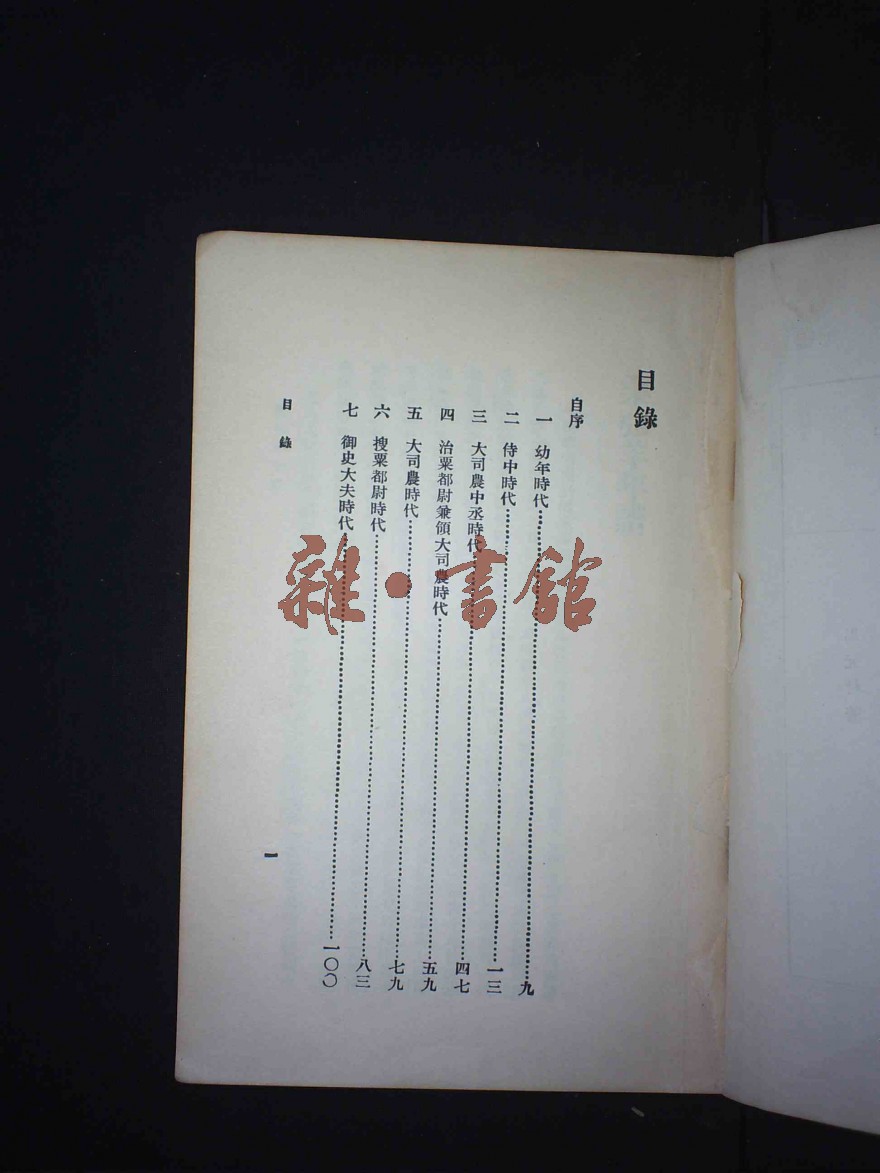 目錄
自序
一 幼年時代……九
二 侍中時代……一三
三 大司農中丞時代……四七
四 治粟都尉兼領大司農時代……五九
五 大司農時代……七九
六 搜粟都尉時代……八三
七 御史大夫時代……一〇〇
目錄
一
雜·書館